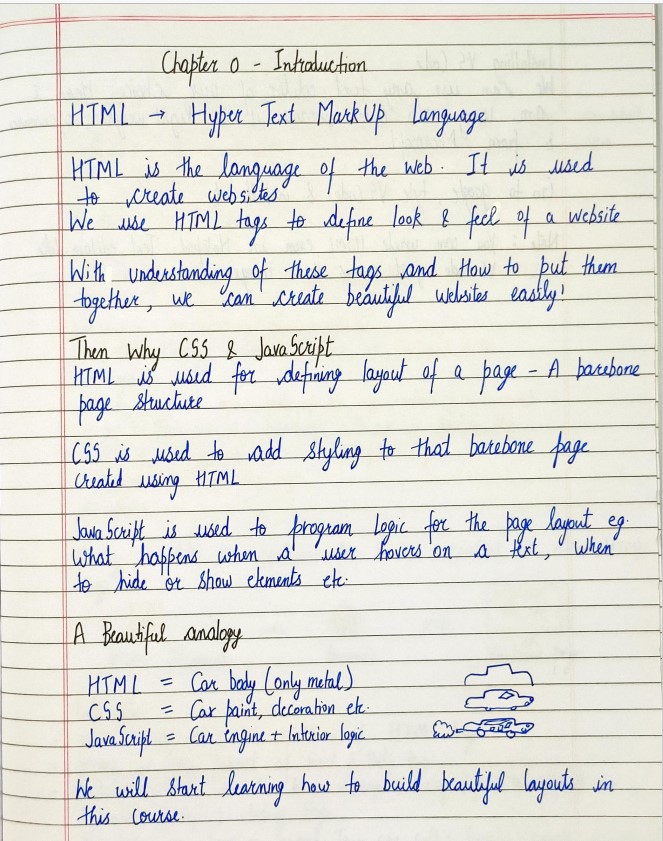 Chapter 0 - Introduction
HTML → Hyper Text MarkUp Language
HTML is the language of the web. It is used
to create websites
We use HTML tags to define look & feel of a website
With understanding of these tags and How to put them
together, we can create beautiful websites easily!
Then Why CSS & JavaScript
HTML is used for defining layout of a page - A barebone
page structure
CSS is used to add styling to that barebone page
created using HTML
JavaScript is used to program logic for the page layout eg.
What happens when a user hovers on a text, when
to hide or show elements etc.
A Beautiful analogy
HTML = Car body (only metal)
CSS = Car paint, decoration etc.
JavaScript = Car engine + Interior logic
We will start learning how to build beautiful layouts in
this course.